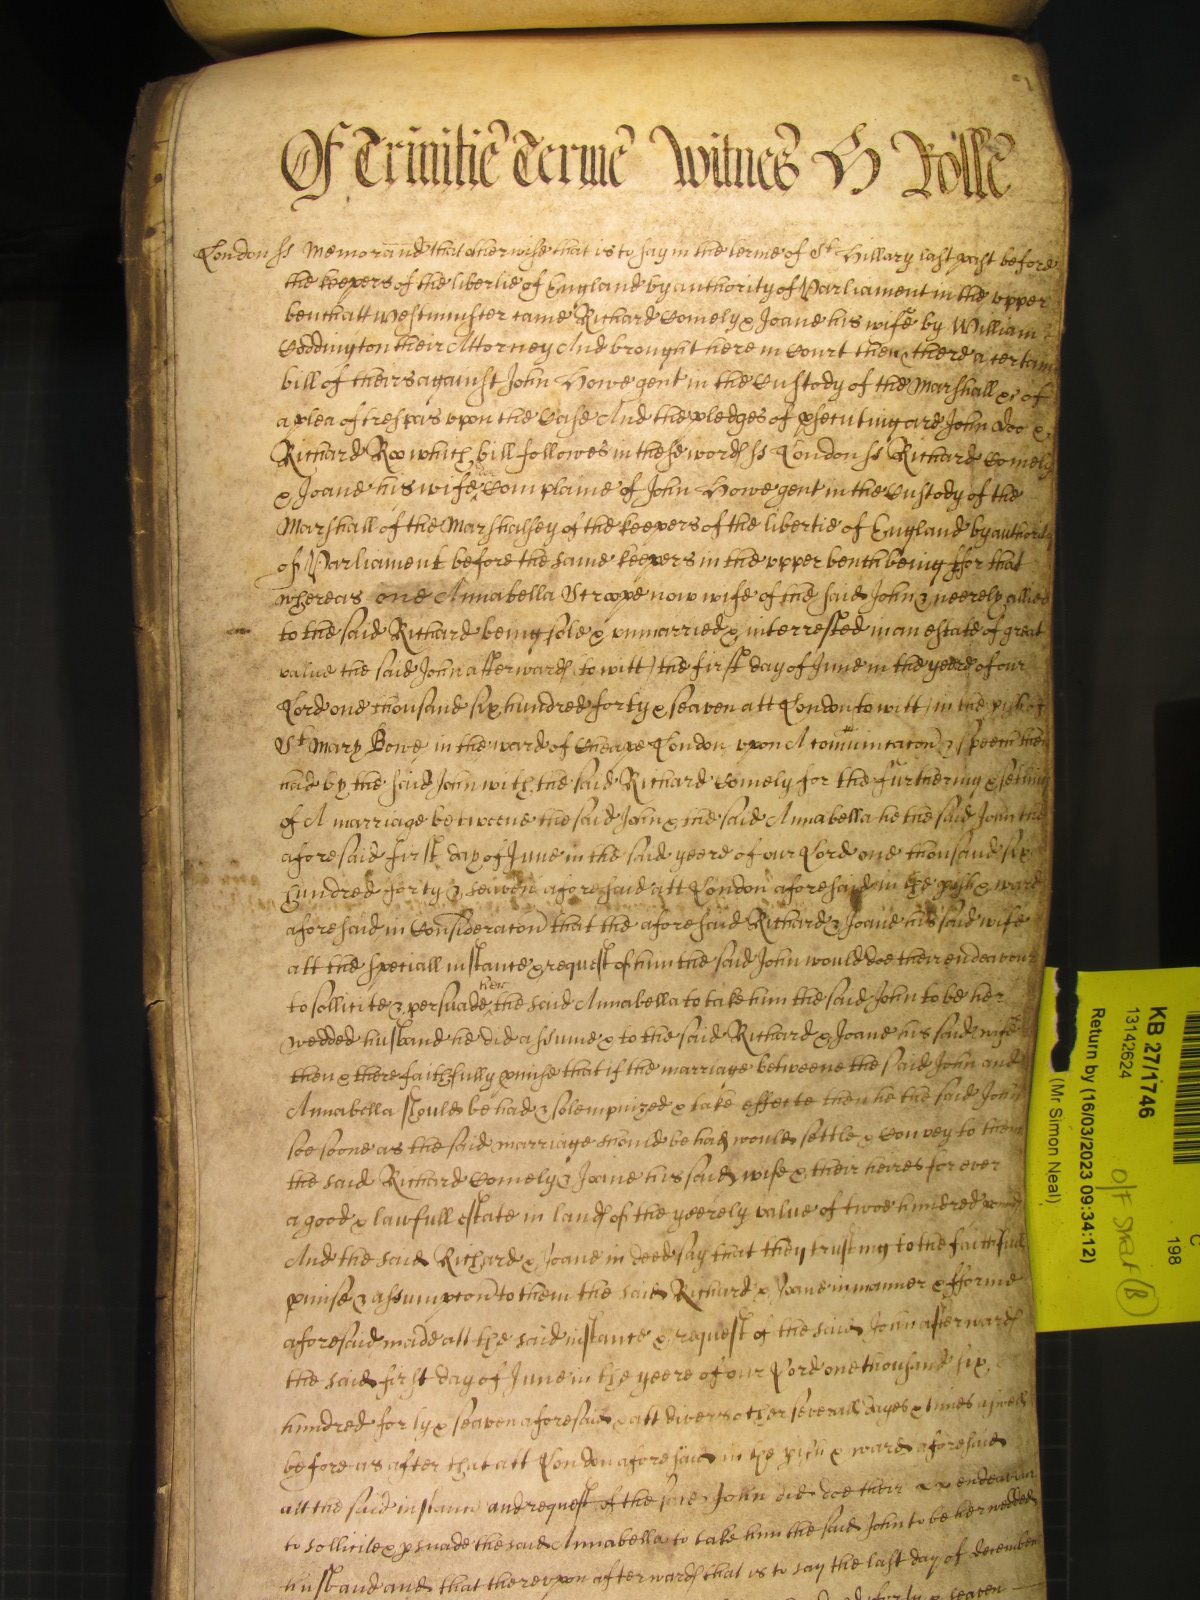 Of Trinitie Terme Witnes H Rolle
London ss Memorand that otherwise that is to say in the terme of St Hillary last past before
the keepers of the libertie of England by authority of Parliament in the upper
bench att Westminster came Richard Comely & Joane his wife by William
Coddington their Attorney And brought here in Court then & there a certain
bill of theirs against John Howe gent in the Custody of the Marshall &c of
a plea of trespas upon the Case And the pledges of psecuting are John Doe &
Richard Roo which bill followes in these words ss London ss Richard Comely
& Joane his wife Complaine of John Howe gent in the Custody of the
Marshall of the Marshalsey of the keepers of the libertie of England by authority
of Parliament before the same keepers in the upper bench being ffor that
whereas one Annabella Stroope now wife of the said John & neerely allied
to the said Richard being sole & unmarried & interressed in an estate of great
value the said John afterwards (to witt) the first day of June in the yeere of our
Lord one thousand six hundred forty & seaven att London to witt in the pish of
St Mary Bowe in the ward of Cheape London upon A comunicacon & speech then
had by the said John with the said Richard Comely for the furthering & setling
of A marriage betweene the said John & the said Annabella he the said John the
aforesaid first day of June in the said yeere of our Lord one thousand six
hundred forty & seaven aforesaid att London aforesaid in the pish & ward
aforesaid in Consideracon that the aforesaid Richard & Joane his said wife
att the speciall instance & request of him the said John would doe their endeavour
to sollicite & perswade her the said Annabella to take him the said John to be her
wedded husband he did assume & to the said Richard & Joane his said wife
then & there faithfully pmise that if the marriage betweene the said John and
Annabella should be had & solempnized & take effecte then he the said John
soe soone as the said marriage should be had would settle & Convey to them
the said Richard Comely & Joane his said wife & their heires for ever
a good & lawfull estate in lands of the yeerely value of twoe hundred
And the said Richard & Joane in deed say that they trusting to the faithfull
pmise & assumpcon to them the said Richard & Joane in manner & fforme
aforesaid made att the said instance & request of the said John afterwards
the said first day of June in the yeere of our Lord one thousand six
hundred forty & seaven aforesaid & att divers other severall dayes & times aswell
before as after that att London aforesaid in the pish & ward aforesaid
att the said instance and request of the said John did doe their endeavour
to sollicite & pswade the said Annabella to take him the said John to be her wedded
husband and that thereupon afterwards that is to say the last day of december
forty & seaven
KB 27/1746
13142624
Return by (16/03/2023 09:34:12)
(Mr Simon Neal)
C
198
O/F Stret (B)